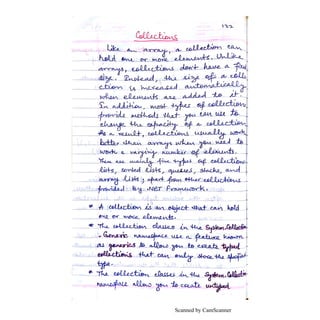 122
Collections
Like an array, a collection can
hold one or more elements. Unlike
arrays, collections don't have a fixed
size. Instead, the size of a colle
ction is increased automatically
when elements are added to it.
In addition, most types of collections
provide methods that you can use to
change the capacity of a collection.
As a result, collections usually work
better than arrays when you need to
work a varying number of elements.
There are mainly five types of collections
lists, sorted lists, queues, stacks, and
array lists; apart from other collections
provided by .NET Framework.
* A collection is an object that can hold
one or more elements.
* The collection classes in the System.Collection
.Generic namespace use a feature known
as generics to allow you to create typed
collections that can only store the specified
type.
* The collection classes in the System.Collection
namespace allow you to create untyped
Scanned by CamScanner